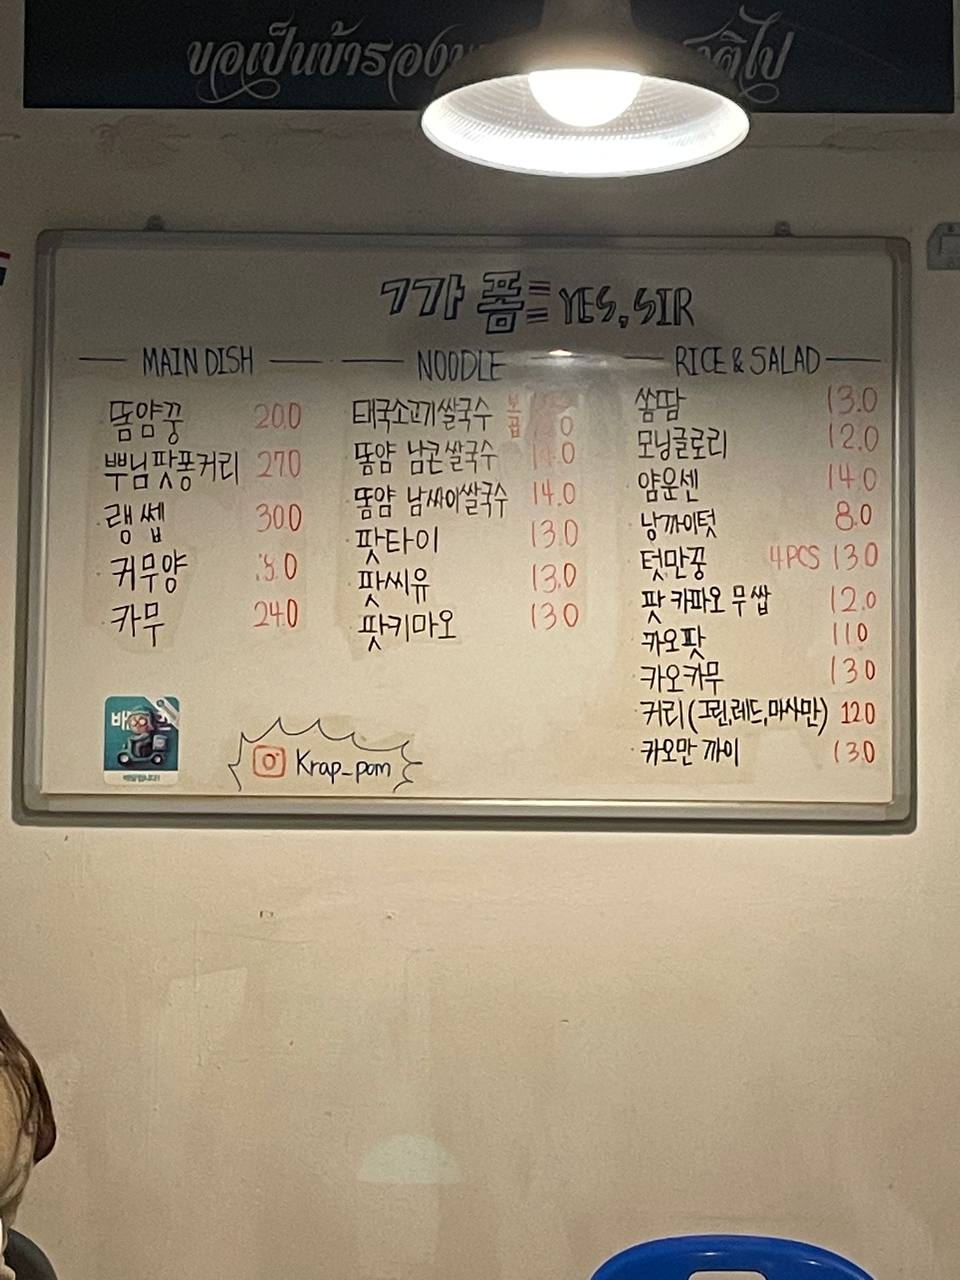 ขอเป็นข้ารอง
ติไป
ㄱ가 폼 YES, SIR
MAIN DISH
똠얌꿍 20.0
뿌님팟퐁커리 27.0
랭쎕 30.0
커무양
카무 24.0
NOODLE
태국소고기쌀국수
똠얌 남콘쌀국수
똠얌 남싸이쌀국수 14.0
팟타이 13.0
팟씨유 13.0
팟키마오 13.0
RICE & SALAD
쏨땀 13.0
모닝글로리 12.0
얌운센 14.0
낭까이텃 8.0
텃만꿍 4PCS 13.0
팟 카파오 무쌉 12.0
카오팟 11.0
카오카무 13.0
커리(그린,레드,마사만) 12.0
카오만 까이 13.0
Krap_pom